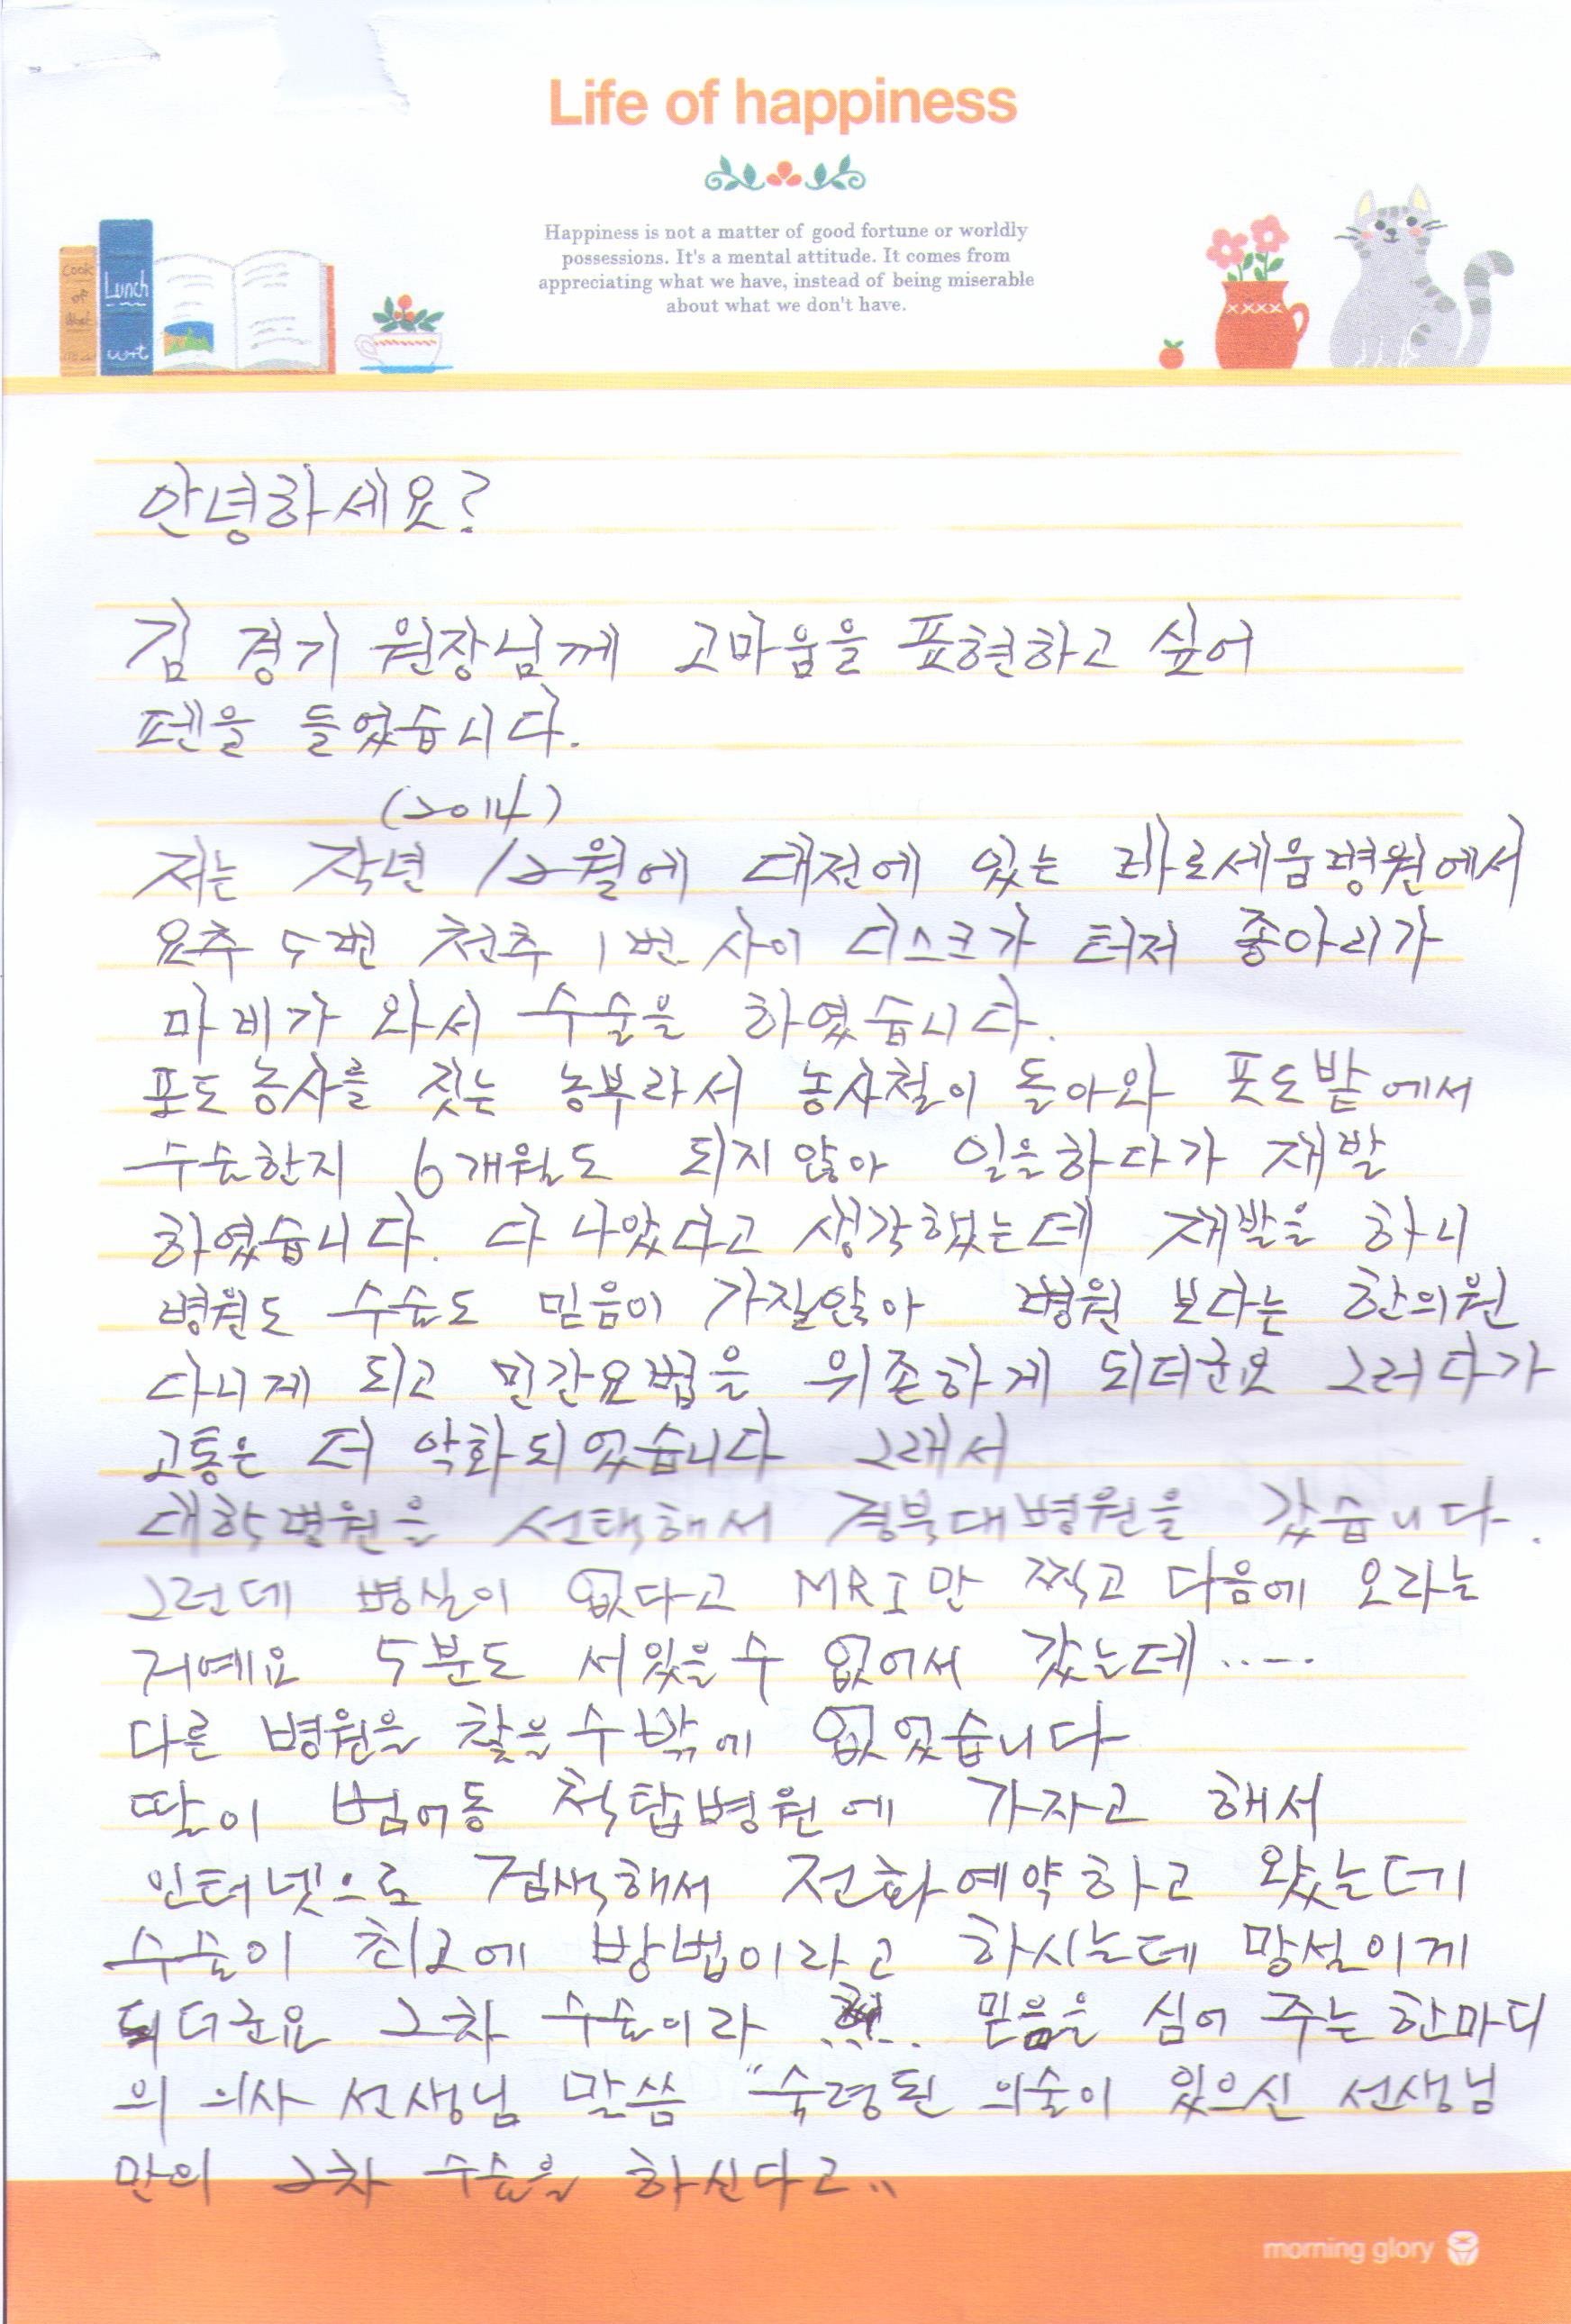 Life of happiness
Happiness is not a matter of good fortune or worldly
possessions. It's a mental attitude. It comes from
appreciating what we have, instead of being miserable
about what we don't have.
Cook
of
Lunch
안녕하세요?
김 경기 원장님께 고마움을 표현하고 싶어
펜을 들었습니다.
(2014)
저는 작년 12월에 대전에 있는 바로세움병원에서
요추 5번 천추 1번 사이 디스크가 터져 종아리가
마비가 와서 수술을 하였습니다.
포도농사를 짓는 농부라서 농사철이 돌아와 포도밭에서
수술한지 6개월도 되지 않아 일을하다가 재발
하였습니다. 다 나았다고 생각했는데 재발을 하니
병원도 수술도 믿음이 가질않아 병원 보다는 한의원
다니게 되고 민간요법을 위존하게 되더군요 그러다가
고통은 더 악화되었습니다 그래서
대학병원을 선택해서 경북대병원을 갔습니다.
그런데 병실이 없다고 MRI만 찍고 다음에 오라는
거예요 5분도 서있을수 없어서 갔는데.....
다른 병원을 찾을수밖에 없었습니다
딸이 범어동 척탑병원에 가자고 해서
인터넷으로 검색해서 전화예약하고 왔는데
수술이 최고에 방법이라고 하시는데 망설이게
되더군요 2차 수술이라 믿음을 심어 주는 한마디
의 의사 선생님 말씀 "숙령된 의술이 있으신 선생님
만의 2차 수술을 하신다고..
morning glory